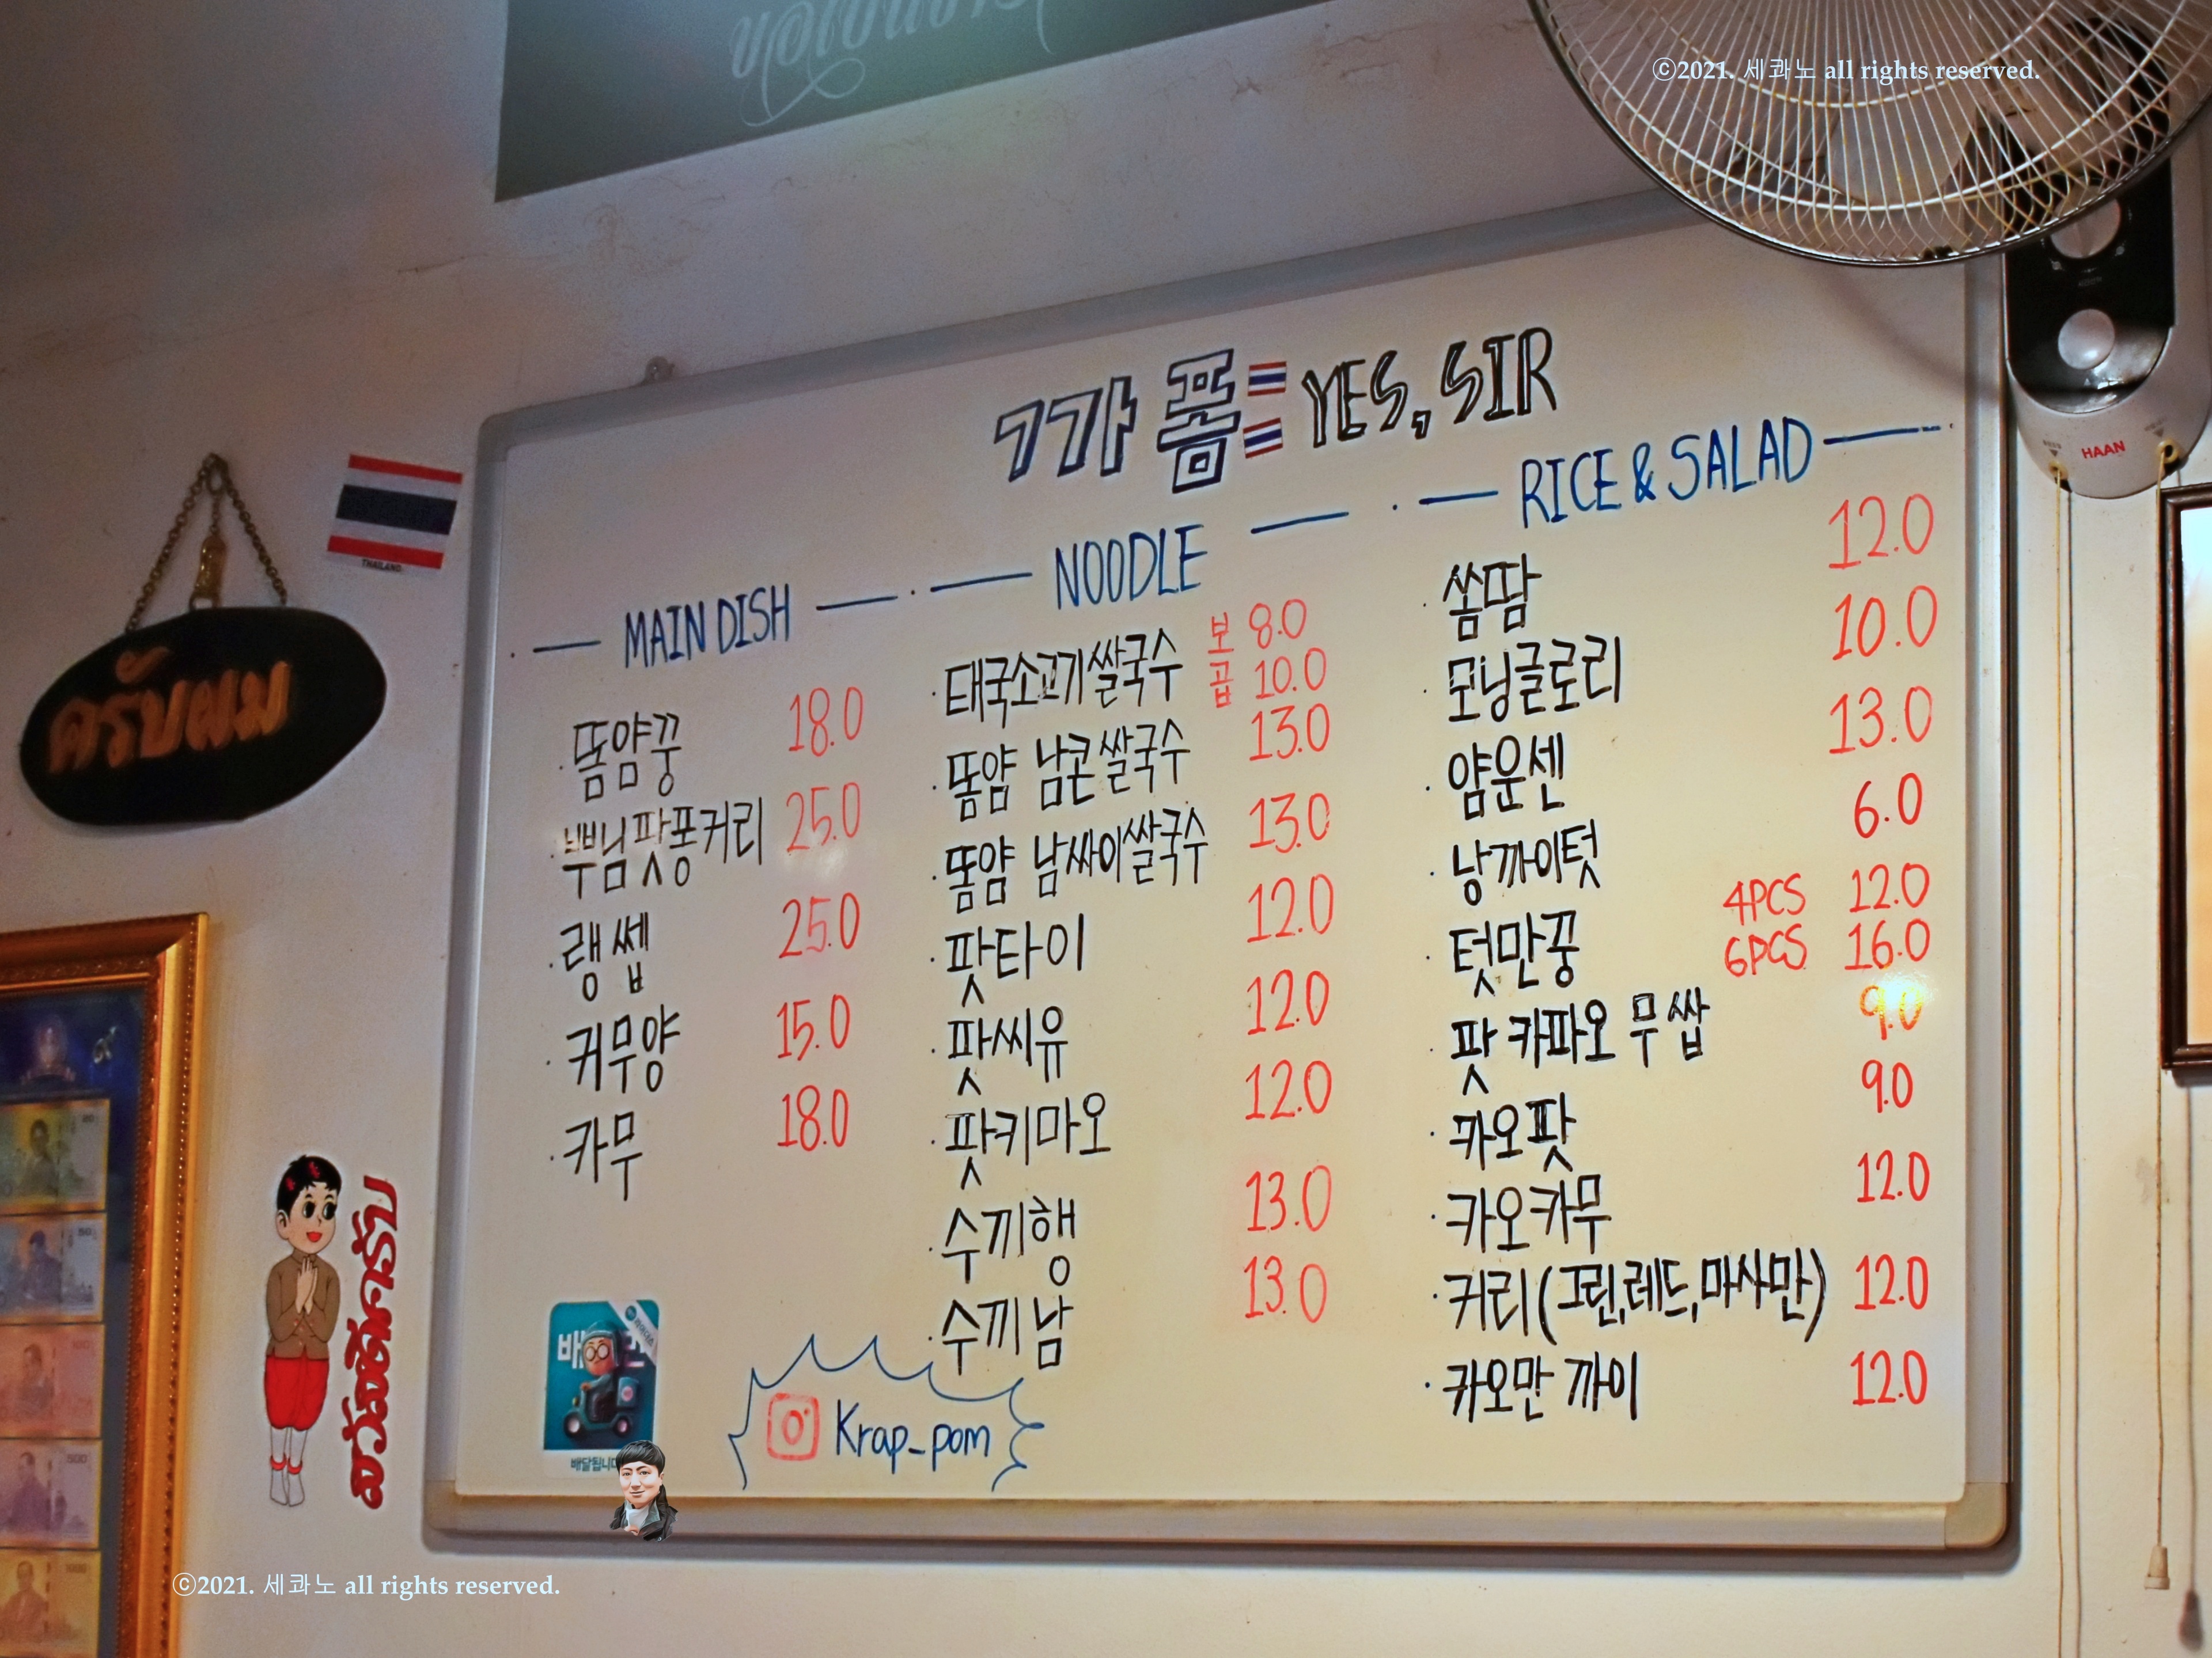 ©2021. 세콰노 all rights reserved.
ครับผม
THAILAND
สวัสดีครับ
까폼 YES, SIR
MAIN DISH
똠얌꿍 18.0
뿌님팟퐁커리 25.0
랭쎕 25.0
커무양 15.0
카무 18.0
NOODLE
태국소고기쌀국수 보 8.0
곱 10.0
똠얌 남콘쌀국수 13.0
똠얌 남싸이쌀국수 13.0
팟타이 12.0
팟씨유 12.0
팟키마오 12.0
수끼행 13.0
수끼남 13.0
RICE & SALAD
쏨땀 12.0
모닝글로리 10.0
얌운센 13.0
낭까이텃 6.0
텃만꿍 4PCS 12.0
6PCS 16.0
팟 카파오 무쌉 9.0
카오팟 9.0
카오카무 12.0
커리(그린,레드,마사만) 12.0
카오만 까이 12.0
Krap_pom
HAAN
©2021. 세콰노 all rights reserved.